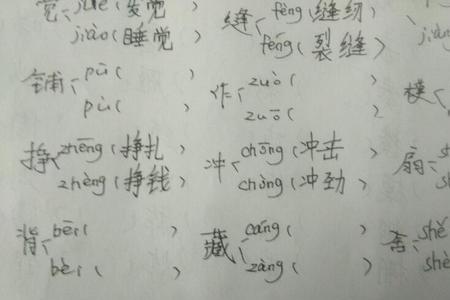 觉 jué (发觉 缝 féng (缝纫)
jiào (睡觉 fèng (裂缝)
铺 pū ( ) 作 zuò ( ) 模
pù ( ) zuō ( )
挣 zhēng (挣扎 ) 冲 chōng (冲击 ) 扇 sh
zhèng (挣钱 ) chòng (冲劲 ) sh
背 bēi ( ) 藏 cáng ( ) 舍 shě
bèi ( ) zàng ( ) shè